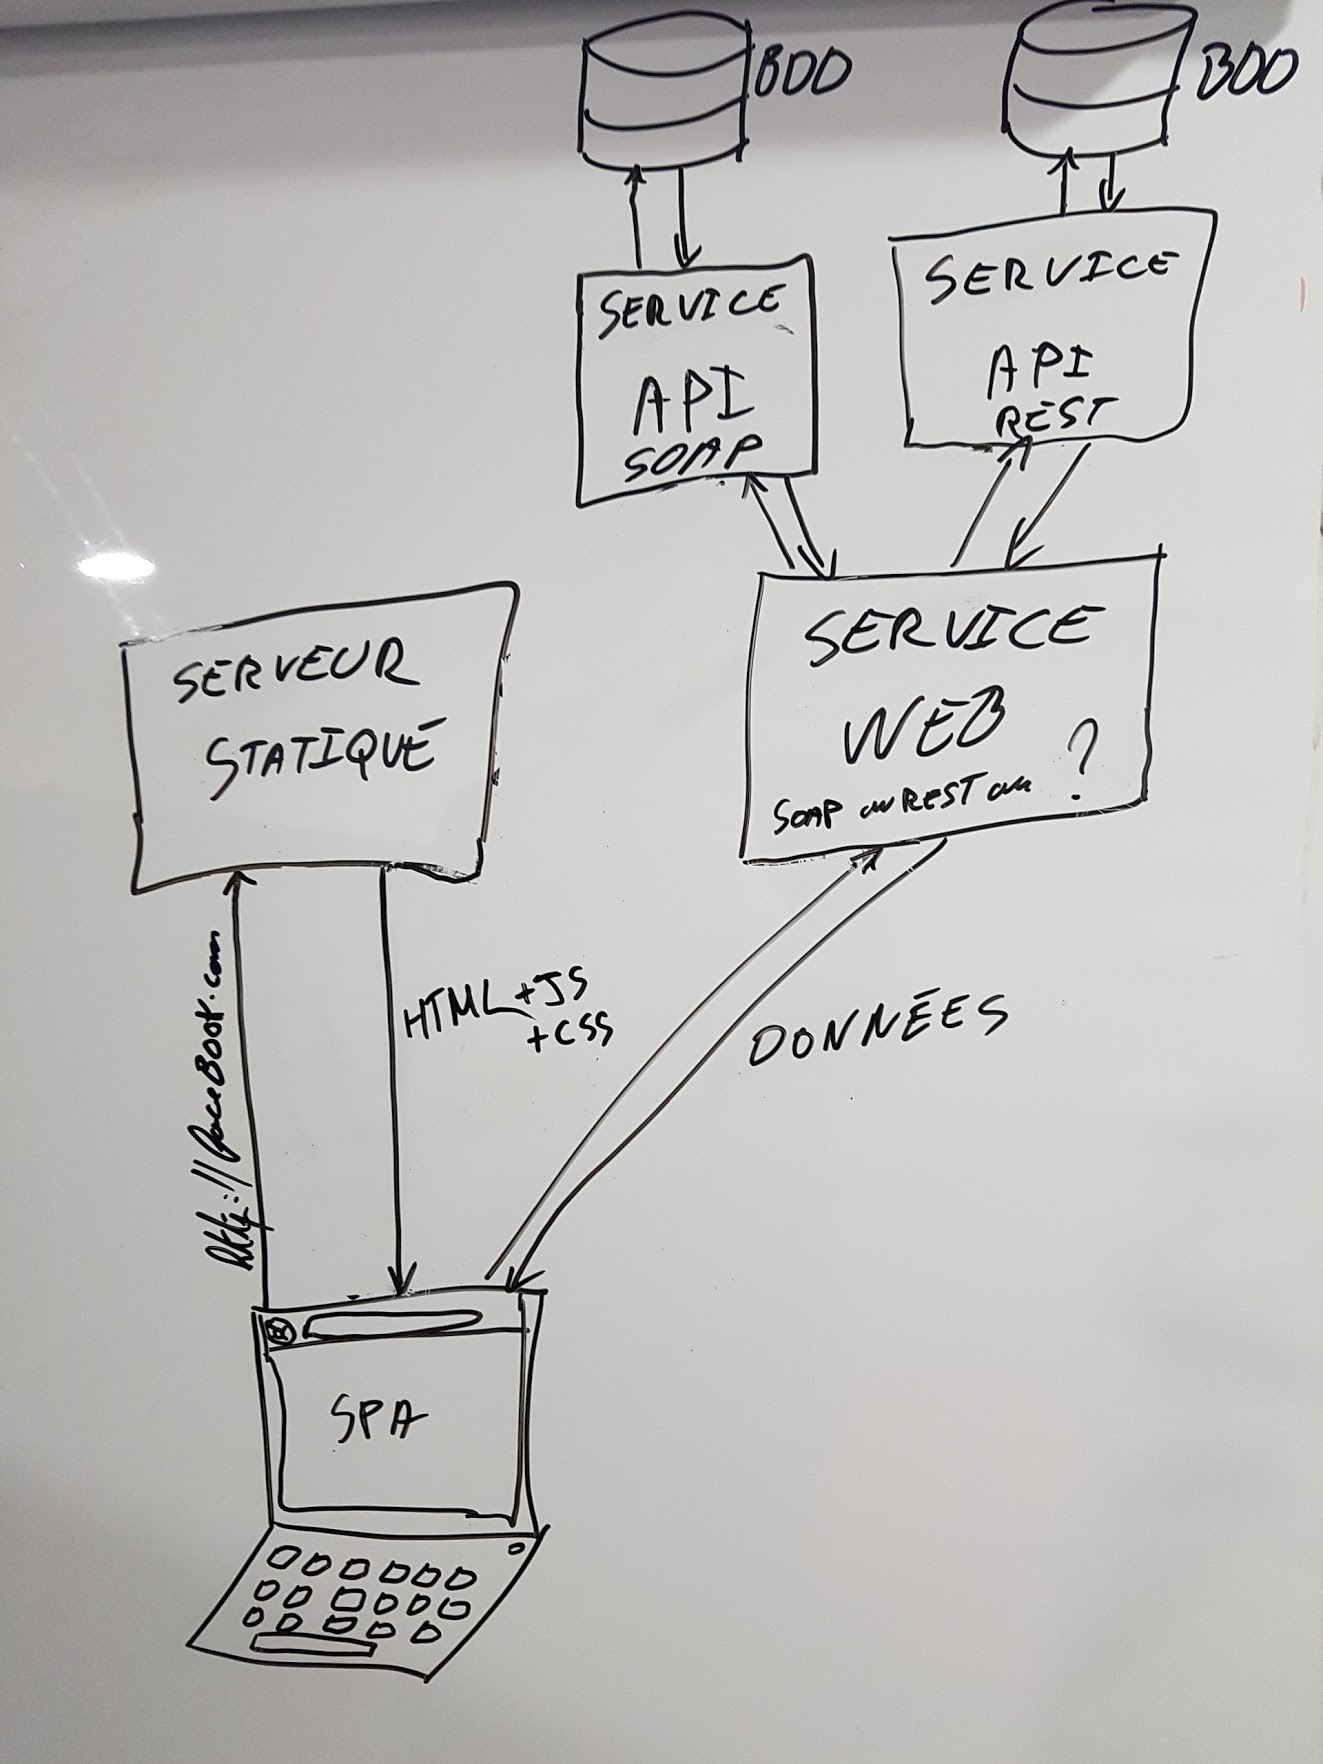 BDD
BDD
SERVICE
API
SOAP
SERVICE
API
REST
SERVEUR
STATIQUE
SERVICE
WEB
SOAP ou REST ou ?
http://faceBook.com
HTML + JS
+ CSS
DONNÉES
SPA